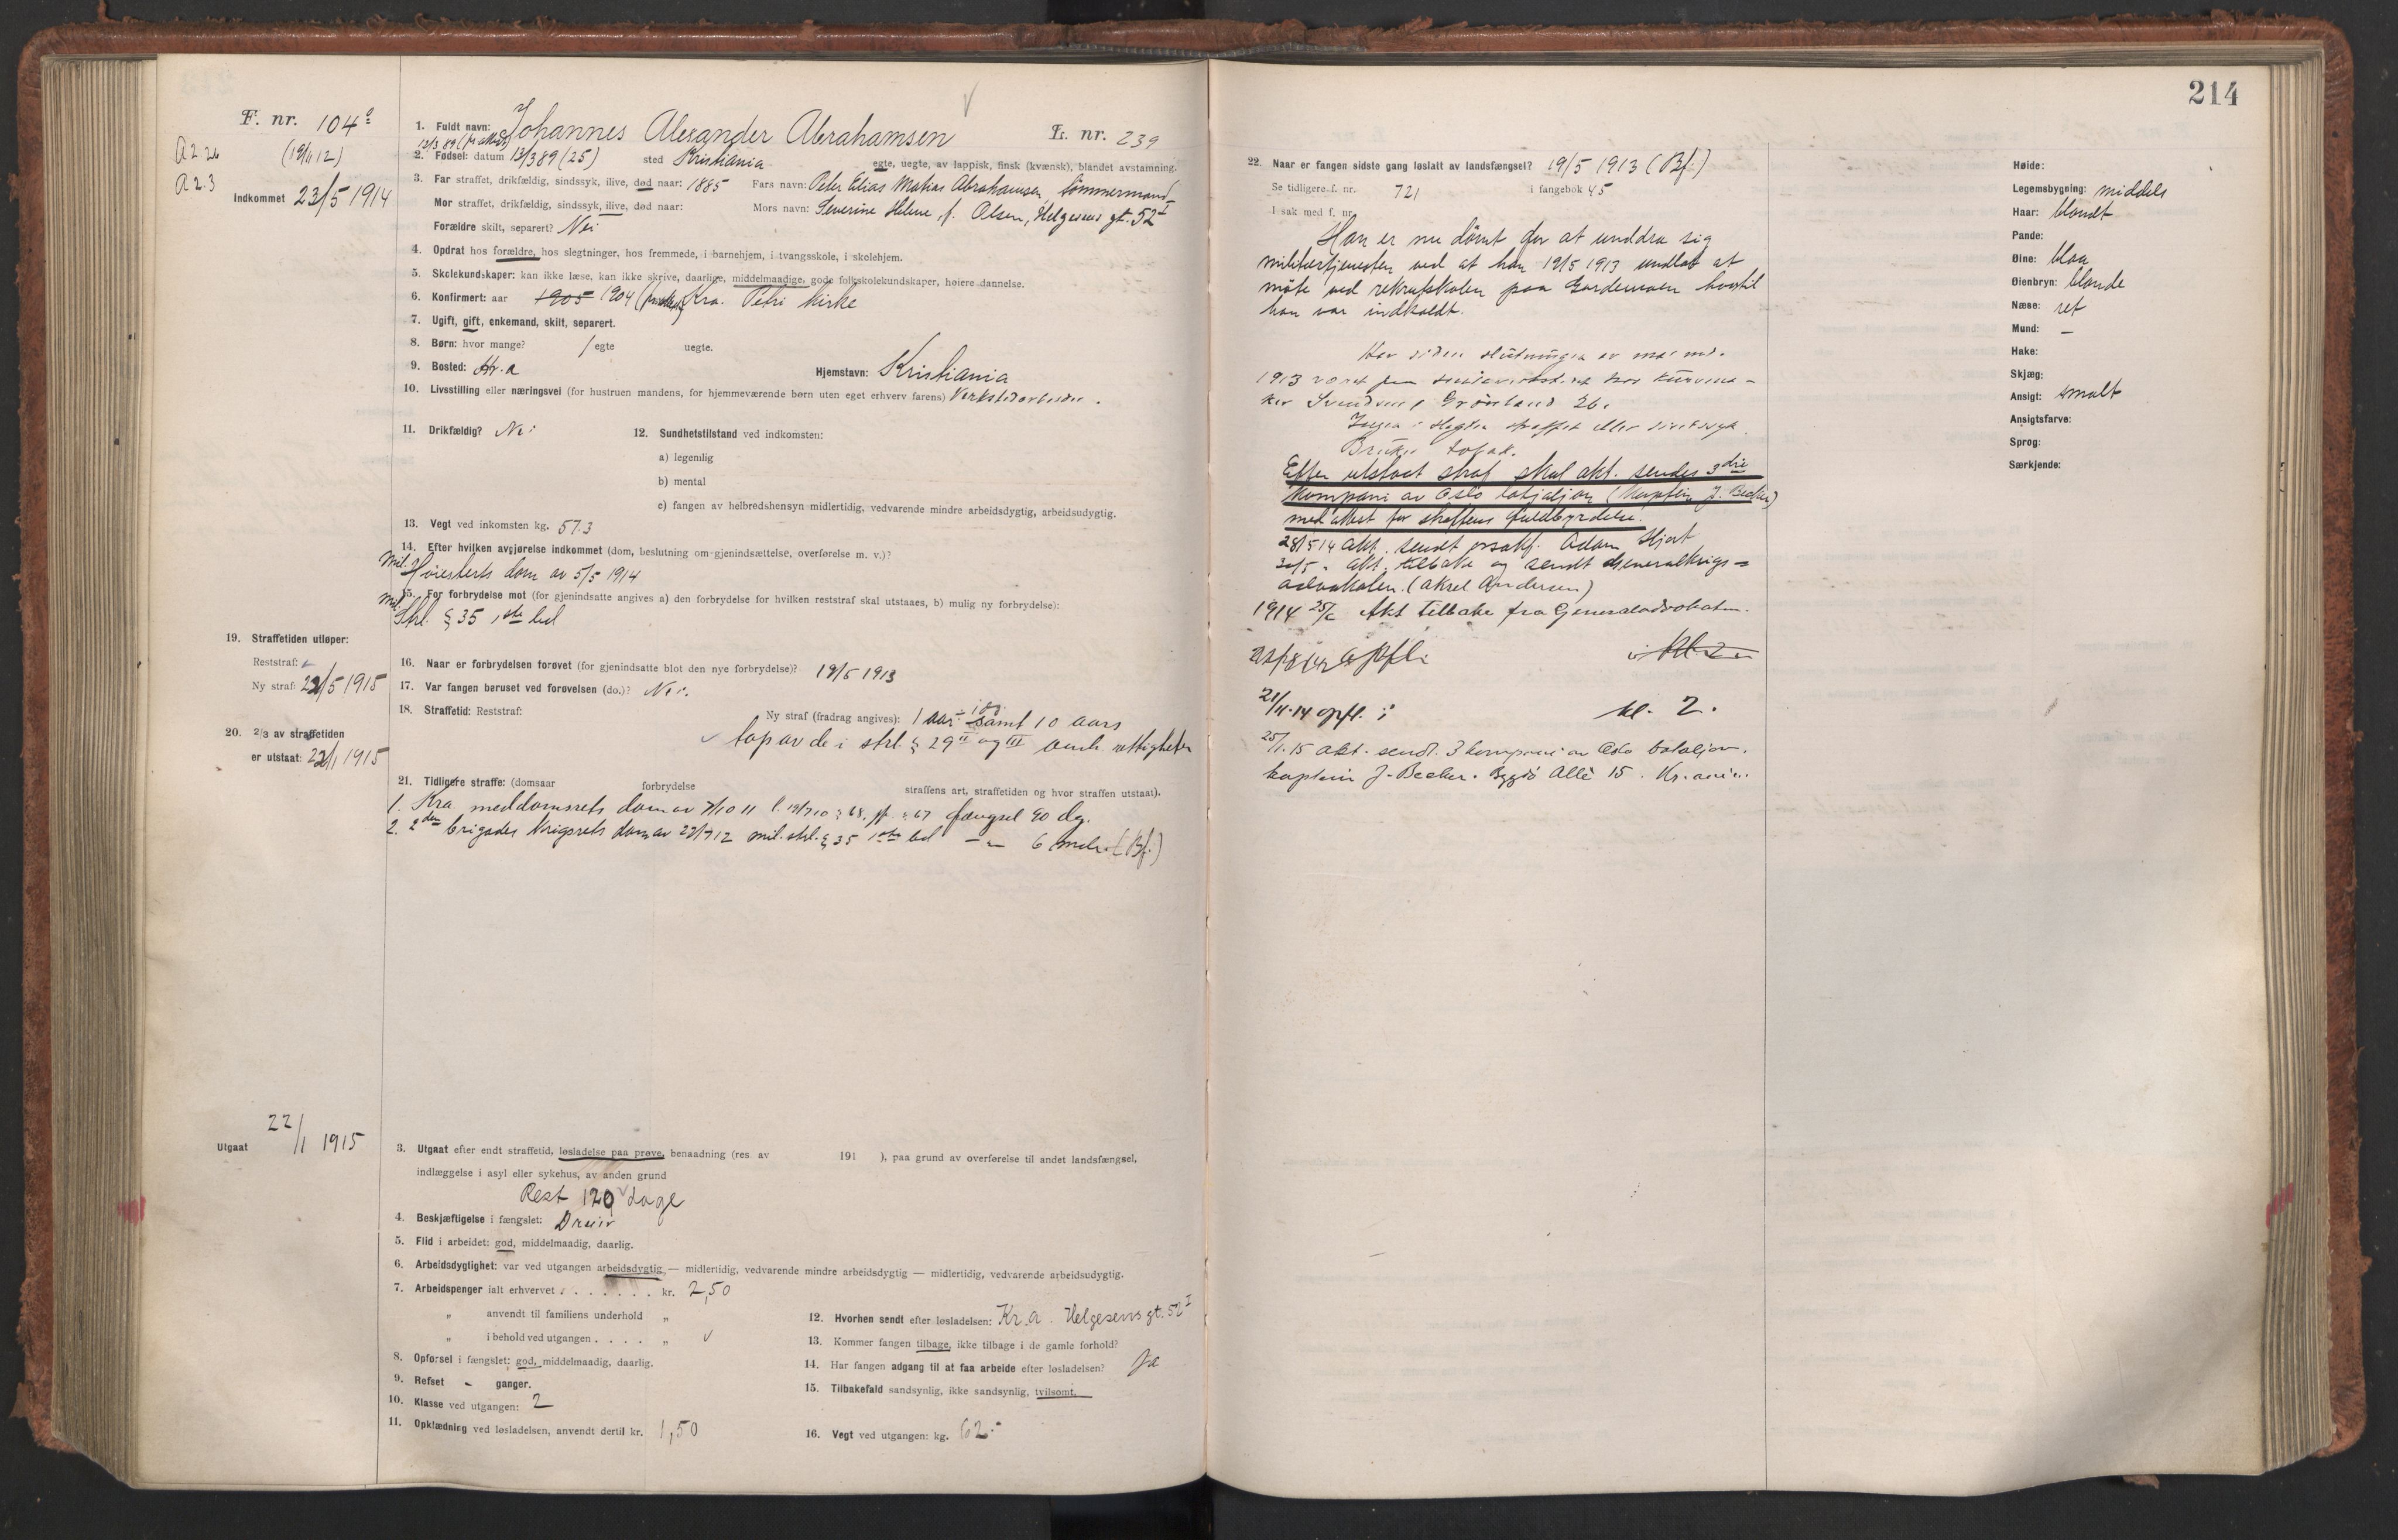 F. nr. 104
A 2 26
(19/11 12)
A 2.3
Indkommet 23/5 1914
1. Fuldt navn: Johannes Alexander Abrahamsen
L. nr. 239
2. Fødsel: datum 13/3 89 (25) sted Kristiania egte, uegte, av lappisk, finsk (kvænsk), blandet avstamning.
3. Far straffet, drikfældig, sindssyk, ilive, død naar: 1885 Fars navn: Peter Elias Matias Abrahamsen, tømmermand
Mor straffet, drikfældig, sindssyk, ilive, død naar: Mors navn: Severine Helene, f. Olsen, Helgesens gt. 52 I
Forældre skilt, separert? Nei
4. Opdrat hos forældre, hos slegtninger, hos fremmede, i barnehjem, i tvangsskole, i skolehjem.
5. Skolekundskaper: kan ikke læse, kan ikke skrive, daarlige, middelmaadige, gode folkskolekundskaper, høiere dannelse.
6. Konfirmert: aar 1905 1904 Kra. Petri kirke
7. Ugift, gift, enkemand, skilt, separert.
8. Børn: hvor mange? 1 egte uegte.
9. Bosted: Kr.a Hjemstavn: Kristiania
10. Livsstilling eller næringsvei (for hustruen mandens, for hjemmeværende børn uten eget erhverv farens) Verkstedarbeider.
11. Drikfældig? Nei 12. Sundhetstilstand ved indkomsten:
a) legemlig
b) mental
c) fangen av helbredshensyn midlertidig, vedvarende mindre arbeidsdygtig, arbeidsudygtig.
13. Vegt ved inkomsten kg. 57.3
14. Efter hvilken avgjørelse indkommet (dom, beslutning om gjenindsættelse, overførelse m. v.)?
Mil. Høiesterets dom av 5/5 1914
15. For forbrydelse mot (for gjenindsatte angives a) den forbrydelse for hvilken reststraf skal utstaaes, b) mulig ny forbrydelse):
Mil. Strl. § 35 1ste led
19. Straffetiden utløper:
Reststraf:
Ny straf: 22/5 1915
16. Naar er forbrydelsen forøvet (for gjenindsatte blot den nye forbrydelse)? 19/5 1913
17. Var fangen beruset ved forøvelsen (do.)? Nei.
18. Straffetid: Reststraf: Ny straf (fradrag angives): 1 aar samt 10 aars
tap av de i strl. § 29 II og III omh. rettigheter
20. 2/3 av straffetiden
er utstaat: 22/1 1915
21. Tidligere straffe: (domsaar forbrydelse straffens art, straffetiden og hvor straffen utstaat).
1. Kra. meddomsrets dom av 7/10 11 l. 19/7 10 § 68. jf. § 67 fængsel 90 dg.
2. 2den brigades krigsrets dom av 27/9 12 mil. strl. § 35 1ste led — " — 6 mdr. (Bf.)
Utgaat 22/1 1915
3. Utgaat efter endt straffetid, løsladelse paa prøve, benaadning (res. av 191 ), paa grund av overførelse til andet landsfængsel,
indlæggelse i asyl eller sykehus, av anden grund
Rest 120 dage
4. Beskjæftigelse i fængslet: Dreier
5. Flid i arbeidet: god, middelmaadig, daarlig.
6. Arbeidsdygtighet: var ved utgangen arbeidsdygtig — midlertidig, vedvarende mindre arbeidsdygtig — midlertidig, vedvarende arbeidsudygtig.
7. Arbeidspenger ialt erhvervet . . . . . . . kr. 2,50
" anvendt til familiens underhold "
" i behold ved utgangen . . . . "
8. Opførsel i fængslet: god, middelmaadig, daarlig.
9. Refset - ganger.
10. Klasse ved utgangen: 2
11. Opklædning ved løsladelsen, anvendt dertil kr. 1,50
12. Hvorhen sendt efter løsladelsen: Kr.a. Helgesens gt. 52 I
13. Kommer fangen tilbage, ikke tilbage i de gamle forhold?
14. Har fangen adgang til at faa arbeide efter løsladelsen? Ja
15. Tilbakefald sandsynlig, ikke sandsynlig, tvilsomt.
16. Vegt ved utgangen: kg. 62.-
214
22. Naar er fangen sidste gang løslatt av landsfængsel? 19/5 1913 (Bf.)
Se tidligere f. nr. 721 i fangebok 45
I sak med f. nr.
Han er nu dømt for at unddra sig
militærtjenesten ved at han 19/5 1913 undlot at
møte ved rekrutskolen paa Gardemoen hvortil
han var indkaldt.
Har siden slutningen av mai md.
1913 været hos kurvma-
ker Svendsen, Grønland 26.
Ingen i slegten straffet eller sindssyk.
Bruker tobak.
Efter utstaat straf skal akt. sendes 3die
kompani av Oslo bataljon (kaptein J. Becker)
med attest for straffens fuldbyrdelse.
28/5 14 akt. sendt o.r.sakf. Adam Hjort
30/5 - akt. tilbake og sendt Generalkrigs=
advokaten. (Aksel Andersen)
1914 25/6 Akt tilbake fra Generaladvokaten.
kl. 2
21/11.14 opfl. i kl. 2.
25/1.15 akt. sendt. 3 kompani av Oslo bataljon.
kaptein J. Becker. Bygdø Allè 15. Kr.ania.
Høide:
Legemsbygning: middels
Haar: blondt
Pande:
Øine: blaa
Øienbryn: blonde
Næse: ret
Mund: —
Hake:
Skjæg:
Ansigt: smalt
Ansigtsfarve:
Sprog:
Særkjende: